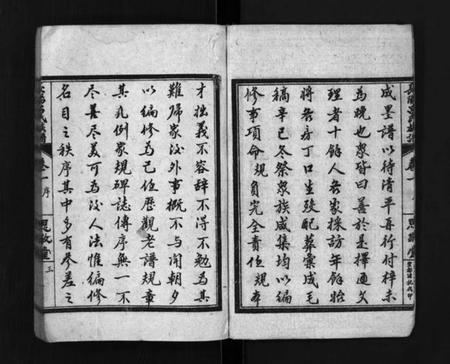 成墨譜以待清平再行付梓未
為晚也眾皆曰善於是擇通文
理者十餘人各家採訪年餘始
將各房丁口生歿配葬彙成毛
稿辛巳冬祭眾族咸集均以編
修事項命規負完全責任規本
才拙義不容辭不得不勉為其
難歸家後外事概不与聞朝夕
以編修為己任歷觀老譜規章
其凡例家規碑誌傳序無一不
尽善尽美可為後人法惟編修
名目之秩序其中多有參差之
卷一
序
三